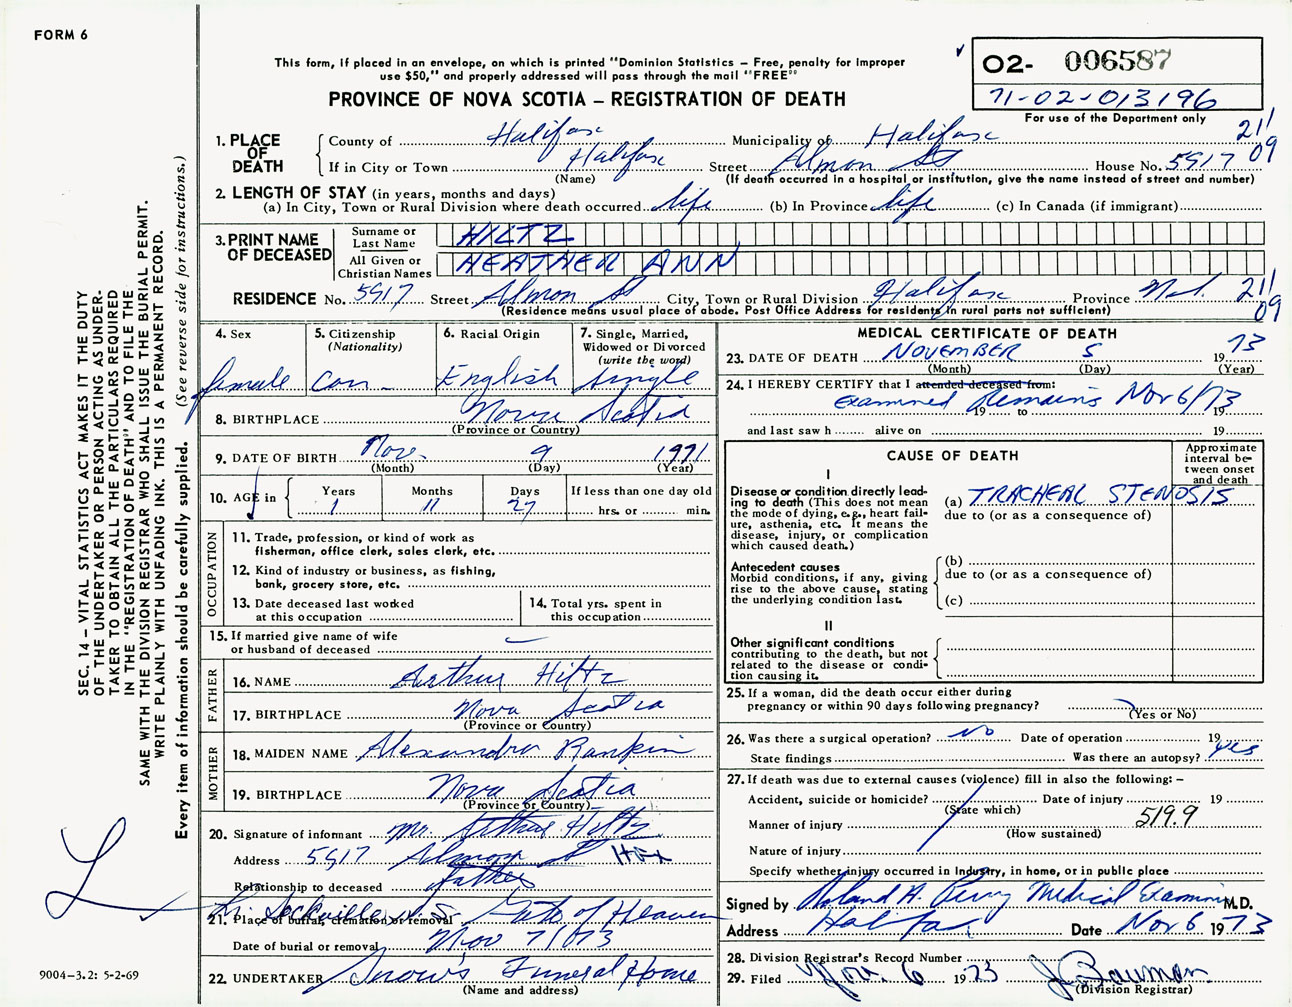 FORM 6
This form, if placed in an envelope, on which is printed "Dominion Statistics — Free, penalty for improper
use $50," and properly addressed will pass through the mail "FREE"
PROVINCE OF NOVA SCOTIA — REGISTRATION OF DEATH
O2- 006587
71-02-013196
For use of the Department only
SEC. 14 — VITAL STATISTICS ACT MAKES IT THE DUTY
OF THE UNDERTAKER OR PERSON ACTING AS UNDER-
TAKER TO OBTAIN ALL THE PARTICULARS REQUIRED
IN THE "REGISTRATION OF DEATH" AND TO FILE THE
SAME WITH THE DIVISION REGISTRAR WHO SHALL ISSUE THE BURIAL PERMIT.
WRITE PLAINLY WITH UNFADING INK. THIS IS A PERMANENT RECORD.
Every item of information should be carefully supplied. (See reverse side for instructions.)
1. PLACE OF DEATH
County of Halifax Municipality of Halifax 211
If in City or Town Halifax Street Almon St House No. 5917 09
(Name) (If death occurred in a hospital or institution, give the name instead of street and number)
2. LENGTH OF STAY (in years, months and days)
(a) In City, Town or Rural Division where death occurred life (b) In Province life (c) In Canada (if immigrant)
3. PRINT NAME OF DECEASED
Surname or Last Name HILTZ
All Given or Christian Names HEATHER ANN
RESIDENCE No. 5917 Street Almon St City, Town or Rural Division Halifax Province N.S. 211
(Residence means usual place of abode. Post Office Address for residents in rural parts not sufficient) 09
4. Sex female
5. Citizenship (Nationality) Can
6. Racial Origin English
7. Single, Married, Widowed or Divorced (write the word) Single
8. BIRTHPLACE Nova Scotia
(Province or Country)
9. DATE OF BIRTH Nov. 9 1971
(Month) (Day) (Year)
10. AGE in Years 1 Months 11 Days 27 If less than one day old hrs. or min.
OCCUPATION
11. Trade, profession, or kind of work as
fisherman, office clerk, sales clerk, etc.
12. Kind of industry or business, as fishing,
bank, grocery store, etc.
13. Date deceased last worked
at this occupation
14. Total yrs. spent in
this occupation
15. If married give name of wife
or husband of deceased
FATHER
16. NAME Arthur Hiltz
17. BIRTHPLACE Nova Scotia
(Province or Country)
MOTHER
18. MAIDEN NAME Alexandra Rankin
19. BIRTHPLACE Nova Scotia
(Province or Country)
20. Signature of informant Mr. Arthur Hiltz
Address 5917 Almon St Hfx
Relationship to deceased father
Lr. Sackville N.S. Gate of Heaven
21. Place of burial, cremation or removal
Date of burial or removal Nov 7/73
22. UNDERTAKER Snow's Funeral Home
(Name and address)
MEDICAL CERTIFICATE OF DEATH
23. DATE OF DEATH NOVEMBER 5 1973
(Month) (Day) (Year)
24. I HEREBY CERTIFY that I attended deceased from:
Examined Remains Nov 6/73
19 to 19
and last saw h alive on 19
CAUSE OF DEATH
Approximate interval between onset and death
I
Disease or condition directly lead-
ing to death (This does not mean
the mode of dying, e.g., heart fail-
ure, asthenia, etc. It means the
disease, injury, or complication
which caused death.)
(a) TRACHEAL STENOSIS
due to (or as a consequence of)
Antecedent causes
Morbid conditions, if any, giving
rise to the above cause, stating
the underlying condition last.
(b)
due to (or as a consequence of)
(c)
II
Other significant conditions
contributing to the death, but not
related to the disease or condi-
tion causing it.
25. If a woman, did the death occur either during
pregnancy or within 90 days following pregnancy?
(Yes or No)
26. Was there a surgical operation? No Date of operation 19
State findings Was there an autopsy? yes
27. If death was due to external causes (violence) fill in also the following: —
Accident, suicide or homicide? Date of injury 19
(State which)
Manner of injury 519.9
(How sustained)
Nature of injury
Specify whether injury occurred in Industry, in home, or in public place
Signed by Roland A. Perry Medical Examiner M.D.
Address Halifax Date Nov 6 1973
28. Division Registrar's Record Number
29. Filed Nov. 6 1973
(Division Registrar)
9004-3.2: 5-2-69